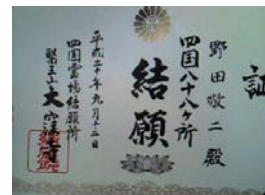 証
野田敬二殿
四国八十八ヶ所
結願
平成二十年九月十三日
四国霊場結願所
医王山大窪寺